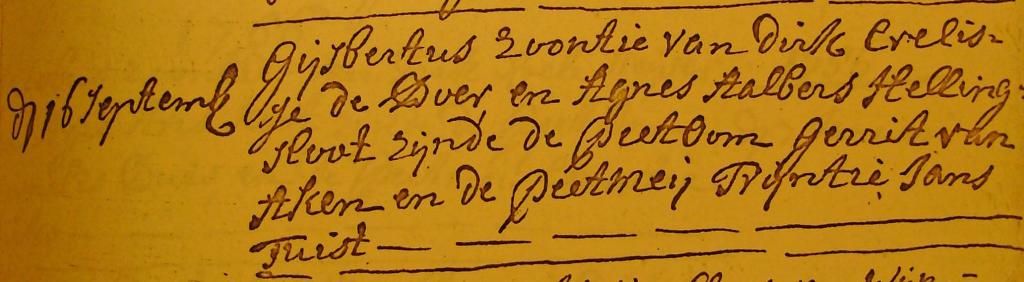 Gijsbertus zoontie van Dirk Crelis-
dn 16 Septemb
se de Boer en Agnes Aalbers Stelling-
sloot zijnde de peetoom Gerrit van
Aken en de peetmeij Trijntie Jans
Tuist